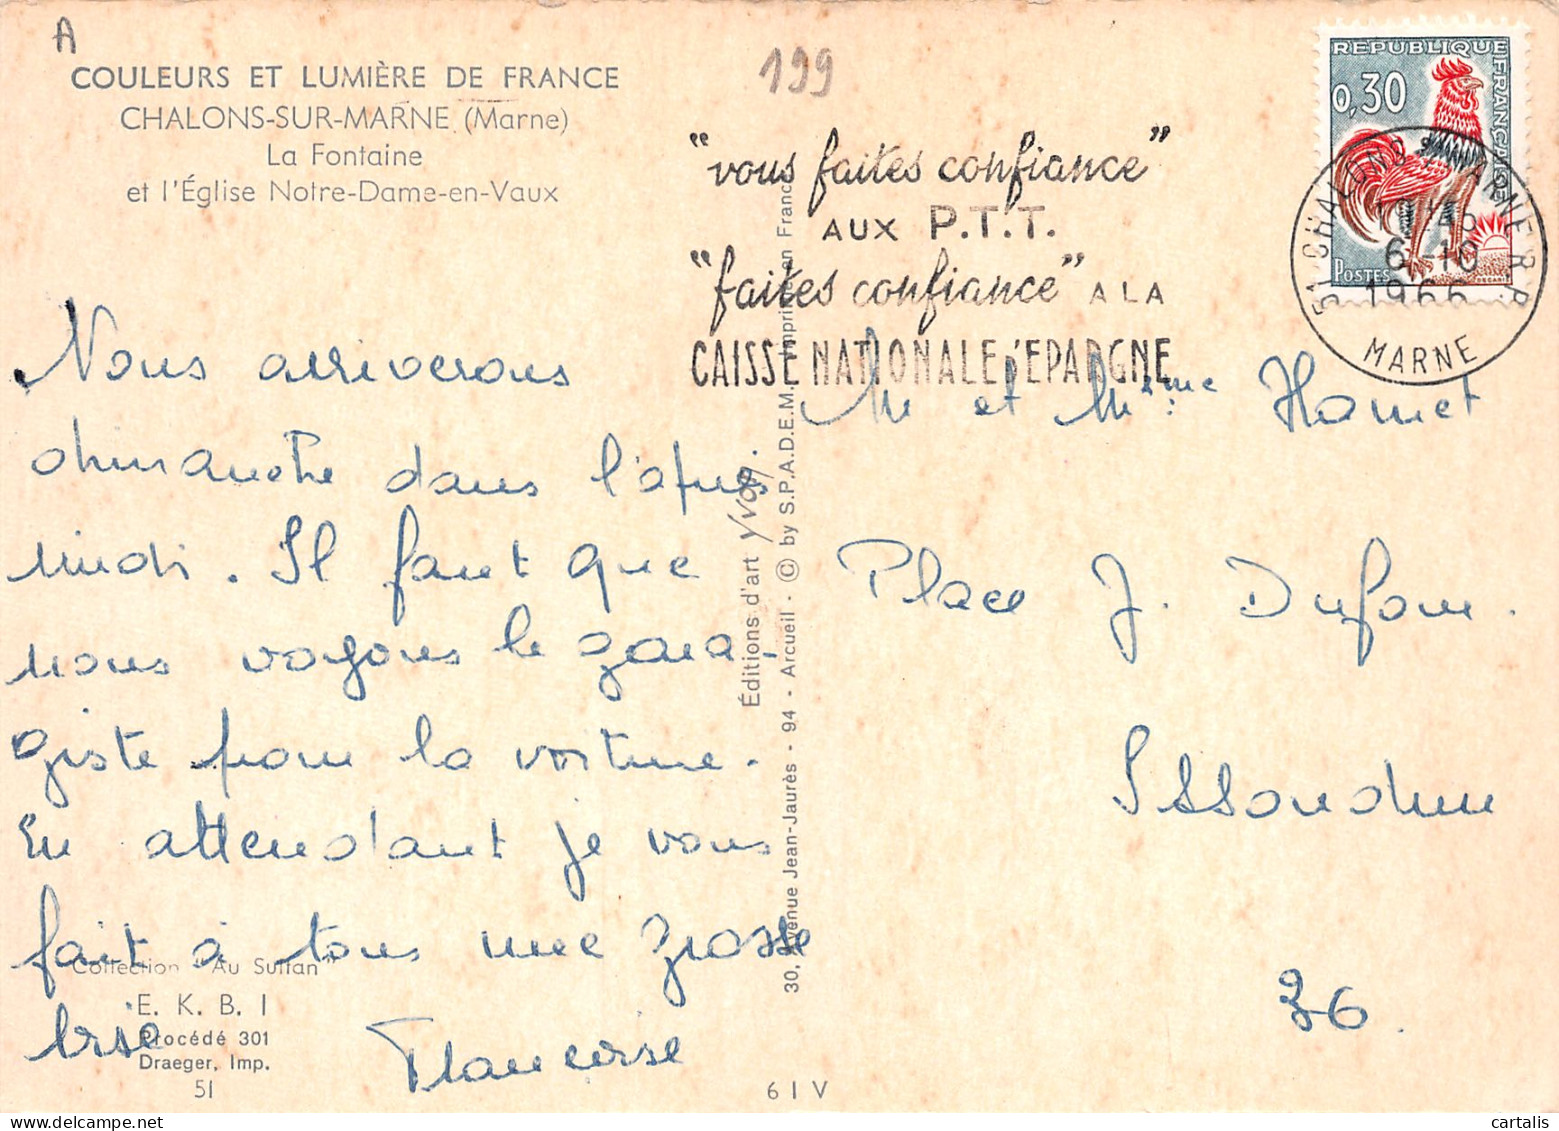 A
COULEURS ET LUMIÈRE DE FRANCE
CHALONS-SUR-MARNE (Marne)
La Fontaine
et l'Église Notre-Dame-en-Vaux
199
"vous faites confiance"
AUX P.T.T.
"faites confiance" A LA
CAISSE NATIONALE D'EPARGNE
REPUBLIQUE FRANÇAISE
0,30
POSTES
DECARIS
51 CHALONS S MARNE R.P.
6 -10
1966
MARNE
Nous arriverons
dimanche dans l'après
midi. Il faut que
nous voyons le gara-
giste pour la voiture.
En attendant je vous
fait à tous une grosse
bise
Francoise
Collection "Au Sultan"
E. K. B. I
Procédé 301
Draeger, Imp.
51
Éditions d'art Yvon
30, Avenue Jean-Jaurès - 94 - Arcueil - © by S.P.A.D.E.M. Imprimé en France
6 I V
M et Mme Hamet
Place J. Dufour.
Issoudun
36.
cartalis